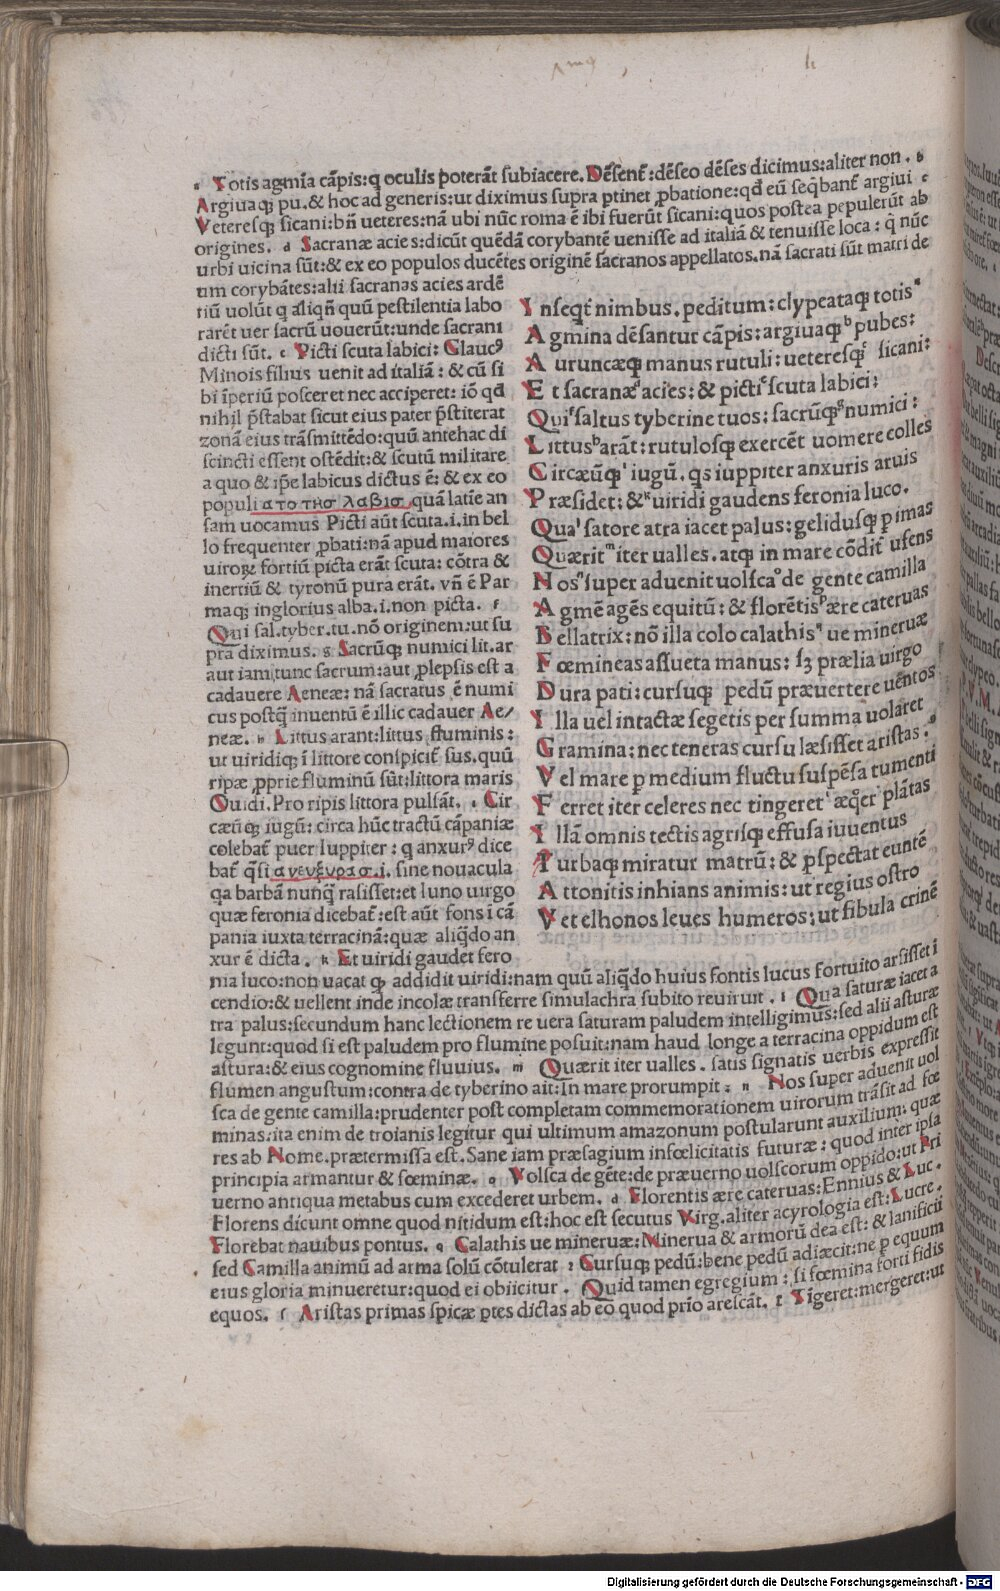 ᵃ Totis agmīa cāpis: q̄ oculis poterāt subiacere. Dēsent̄: dēseo dēses dicimus: aliter non. ᵇ
Argiuaq; pu. & hoc ad generis: ut diximus supra ꝑtinet ꝓbatione: qd̄ eū seq̄bant̄ argiui ᶜ
Veteresq; sicani: bn̄ ueteres: nā ubi nūc roma ē ibi fuerūt sicani: quos postea pepulerūt ab
origines. ᵈ Sacranæ acies: dicūt quēdā corybantē uenisse ad italiā & tenuisse loca: q̄ nūc
urbi uicina sūt: & ex eo populos ducētes originē sacranos appellatos. nā sacrati sūt matri de
um corybātes: alii sacranas acies ardē
tiū uolūt q̄ aliqn̄ quū pestilentia labo
rarēt uer sacrū uouerūt: unde sacrani
dicti sūt. ᵉ Picti scuta labici: Glaucꝰ
Minois filius uenit ad italiā: & cū si
bi īperiū posceret nec acciperet: iō qd̄
nihil p̄stabat sicut eius pater p̄stiterat
zonā eius trāsmittēdo: quū antehac di
scincti essent ostēdit: & scutū militare
a quo & ip̄e labicus dictus ē: & ex eo
populi ατο τησ λαβισ quā latīe an
sam uocamus Picti aūt scuta .i. in bel
lo frequenter ꝓbati: nā apud maiores
uiroꝝ fortiū picta erāt scuta: cōtra &
inertiū & tyronū pura erāt. vn̄ ē Par
maq; inglorius alba .i. non picta. ᶠ
Qui sal. tyber. tu. nō originem: ut su
pra diximus. g Sacrūq; numici lit. ar
aut iam tunc sacrum: aut ꝓlepsis est a
cadauere Aeneæ: nā sacratus ē numi
cus postq̄ inuentū ē illic cadauer Ae/
neæ. ʰ Littus arant: littus fluminis:
ut uiridiq; ī littore conspicit̄ sus. quū
ripæ ꝓprie fluminū sūt: littora maris
Ouidi. Pro ripis littora pulsāt. ⁱ Cir
cæūq; iugū: circa hūc tractū cāpaniæ
colebat̄ puer Iuppiter: q̄ anxurꝰ dice
bat̄ q̄si ανευξυρασ .i. sine nouacula
q̄a barbā nunq̄ rasisset: et Iuno uirgo
quæ feronia dicebat̄: est aūt fons ī cā
pania iuxta terracinā: quæ aliq̄do an
xur ē dicta. ᵏ Et uiridi gaudet fero
nia luco: non uacat q̄ addidit uiridi: nam quū aliq̄do huius fontis lucus fortuito arsisset ī
cendio: & uellent inde incolæ transferre simulachra subito reuiruit. ˡ Qua saturæ iacet a
tra palus: secundum hanc lectionem re uera saturam paludem intelligimus: sed alii asturæ
legunt: quod si est paludem pro flumine posuit: nam haud longe a terracina oppidum est
astura: & eius cognomine fluuius. ᵐ Quærit iter ualles. satis signatis uerbis expressit
flumen angustum: contra de tyberino ait: In mare prorumpit: ⁿ Nos super aduenit uol
sca de gente camilla: prudenter post completam commemorationem uirorum trāsit ad fœ
minas: ita enim de troianis legitur qui ultimum amazonum postularunt auxilium: quæ
res ab Nome. prætermissa est. Sane iam præsagium infœlicitatis futuræ: quod inter ipsa
principia armantur & fœminæ. ᵒ Volsca de gēte: de præuerno uolscorum oppido: ut Pri
uerno antiqua metabus cum excederet urbem. ᵖ Florentis ære cateruas: Ennius & Luc.
Florens dicunt omne quod nitidum est: hoc est secutus Virg. aliter acyrologia est: Lucre.
Florebat nauibus pontus. ᑫ Calathis ue mineruæ: Minerua & armorū dea est: & lanificii
sed Camilla animū ad arma solū cōtulerat ʳ Cursuq; pedū: bene pedū adiæcit: ne ꝑ equum
eius gloria minueretur: quod ei obiicitur. Quid tamen egregium: si fœmina forti fidis
equos. ˢ Aristas primas spicæ ꝑtes dictas ab eo quod prīo arescāt. ᵗ Tigeret: mergeret: ut
Inseqt̄ nimbus, peditum: clypeataq; totisᵃ
Agmina dēsantur cāpis: argiuaq;ᵇ pubes:
Auruncæq; manus rutuli: ueteresq;ᶜ sicani:
Et sacranæᵈ acies: & pictiᵉ scuta labici;
Quiᶠ saltus tyberine tuos: sacrūq;ᵍ numici:
Littusʰ arāt: rutulosq; exercēt uomere colles
Circæūq;ⁱ iugū. q̄s iuppiter anxuris aruis
Præsidet: &ᵏ uiridi gaudens feronia luco.
Quaˡ satore atra iacet palus: gelidusq; ꝑ imas
Quæritᵐ iter ualles. atq; in mare cōdit̄ ufens
Nosⁿ super aduenit uolscaᵒ de gente camilla
Agmē agēs equitū: & florētisᵖ ære cateruas
Bellatrix: nō illa colo calathisᑫ ue mineruæ
Fœmineas assueta manus: sꝫ prælia uirgo
Dura pati: cursuq; pedū præuertere uētos
Illa uel intactæ segetis per summa uolaret
Gramina: nec teneras cursu læsisset aristas.ˢ
Vel mare ꝑ medium fluctu suspēsa tumenti
Ferret iter celeres nec tingeretᵗ æq̄r̄ plātas
Illā omnis tectis agrisq; effusa iuuentus
Turbaq; miratur matrū: & ꝓspectat euntē
Attonitis inhians animis: ut regius ostro
Vet elhonos leues humeros: ut fibula crinē
Digitalisierung gefördert durch die Deutsche Forschungsgemeinschaft - DFG